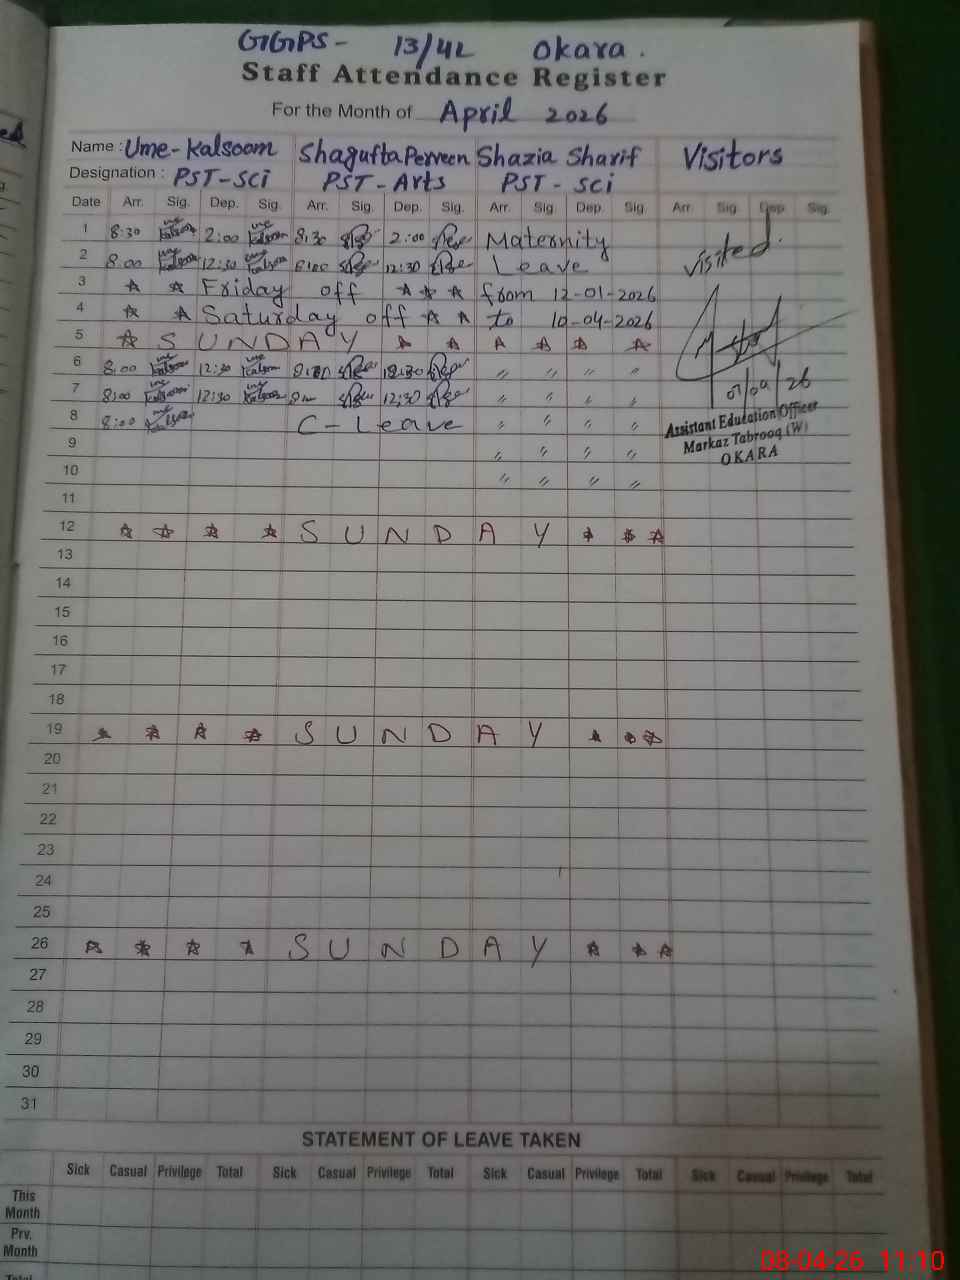 GGPS - 13/4L Okara.
Staff Attendance Register
For the Month of April 2026
Name : Ume-Kalsoom Shagufta Perveen Shazia Sharif Visitors
Designation : PST-Sci PST-Arts PST-Sci
Date Arr. Sig. Dep. Sig. Arr. Sig. Dep. Sig. Arr. Sig. Dep. Sig. Arr. Sig. Dep. Sig.
1 8:30 Ume Kalsoom 2:00 Ume Kalsoom 8:30 2:00 Maternity
2 8:00 Ume Kalsoom 12:30 Ume Kalsoom 8:00 12:30 Leave visited.
3 Friday off from 12-01-2026
4 Saturday off to 10-04-2026
5 SUNDAY
6 8:00 Ume Kalsoom 12:30 Ume Kalsoom 12:30 〃 〃 〃 〃
7 8:00 Ume Kalsoom 12:30 Ume Kalsoom 12:30 〃 〃 〃 〃
8 8:00 Ume Kalsoom C-Leave 〃 〃 〃 〃
Assistant Education Officer
Markaz Tabrooq (W)
OKARA
9 〃 〃 〃 〃
10 〃 〃 〃 〃
11
12 SUNDAY
13
14
15
16
17
18
19 SUNDAY
20
21
22
23
24
25
26 SUNDAY
27
28
29
30
31
STATEMENT OF LEAVE TAKEN
Sick Casual Privilege Total Sick Casual Privilege Total Sick Casual Privilege Total Sick Casual Privilege Total
This
Month
Prv.
Month
Total
08-04-26 11:10